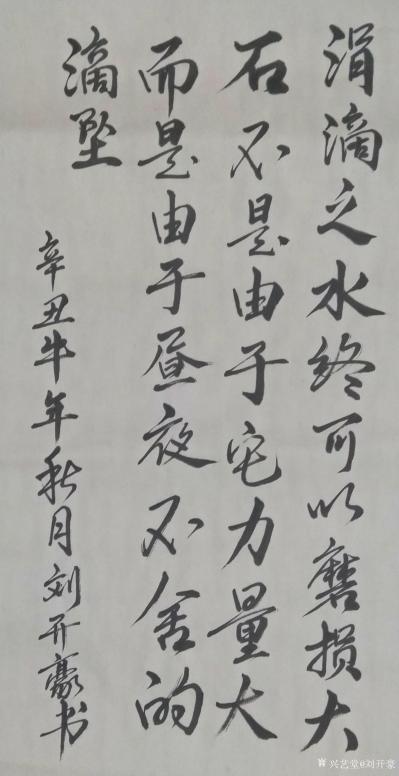 涓滴之水终可以磨损大
石不是由于它力量大
而是由于昼夜不舍的
滴坠
辛丑牛年秋月刘开豪书
兴艺堂@刘开豪